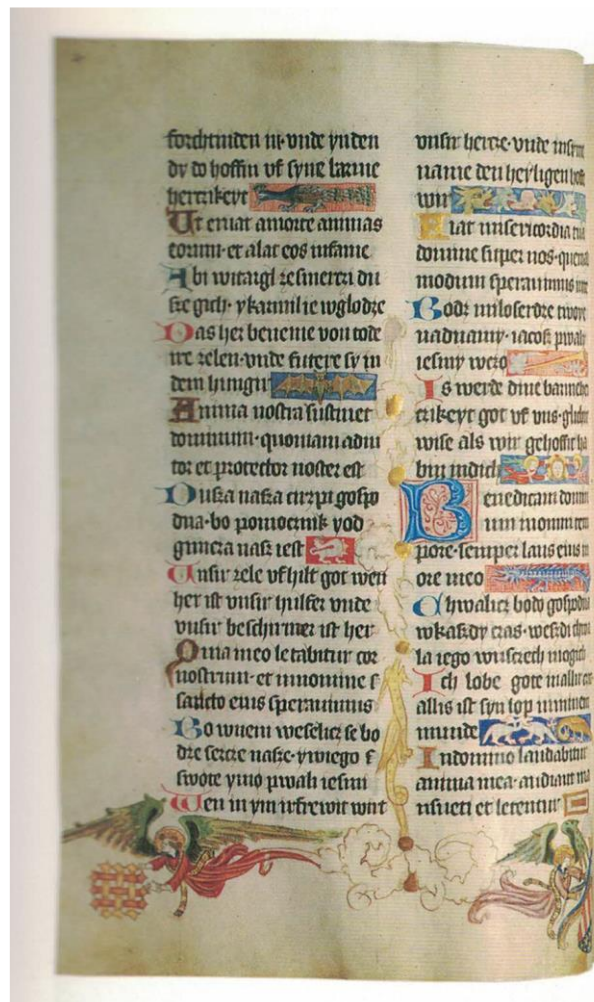 forchtinden in· vnde yn den
dy do hoffin vf syne barme
hertzikeyt
Ut eruat a morte animas
eorum· et alat eos in fame
Abi witargl z esmerczi du
sze gich· y karmil ie w glodze
Das her beneme von tode
ire zelen· vnde futere sy in
dem hungir
Anima nostra sustinet
dominum· quoniam adiu
tor et protector noster est
Dusza nasza cirzpi gospo
dna· bo pomocznik y od
gimcza nasz iest
Unsir zele vfhilt got wen
her ist vnsir hulfer vnde
vnsir beschirmer ist her
Quia in eo letabitur cor
nostrum· et in nomine s
sancto eius sperauimus
Bo w niem weselicz se bo
dze sercze nasze· y w iego s
swote ymo pwali iesmi
Wen in ym irfrewit wirt
vnsir hertze· vnde in syn
name den heyligen hoff
wir
Fiat misericordia tua
domine super nos· quemad
modum sperauimus in te
Bodz miloserdze twoie
nad nami· iacosz pwali
iesmy w cze
Is werde dine barmehe
czikeyt got vf vns· glicher
wise als wir gehoffit ha
bin in dich
Benedicam domin
um in omni tem
pore· semper laus eius in
ore meo
Chwalicz bodo gospodna
w kaszdy czas· weszdi chwa
la iego w usczech mogich
Ich lobe gote in allir czit
allis ist syn lop in minem
munde
In domino laudabitur
anima mea· audiant ma
nsueti et letentur